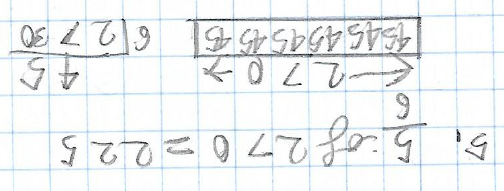 5. 5/6 of 270 = 225
← 270 → 45
45 45 45 45 45 45 6 2 7 30